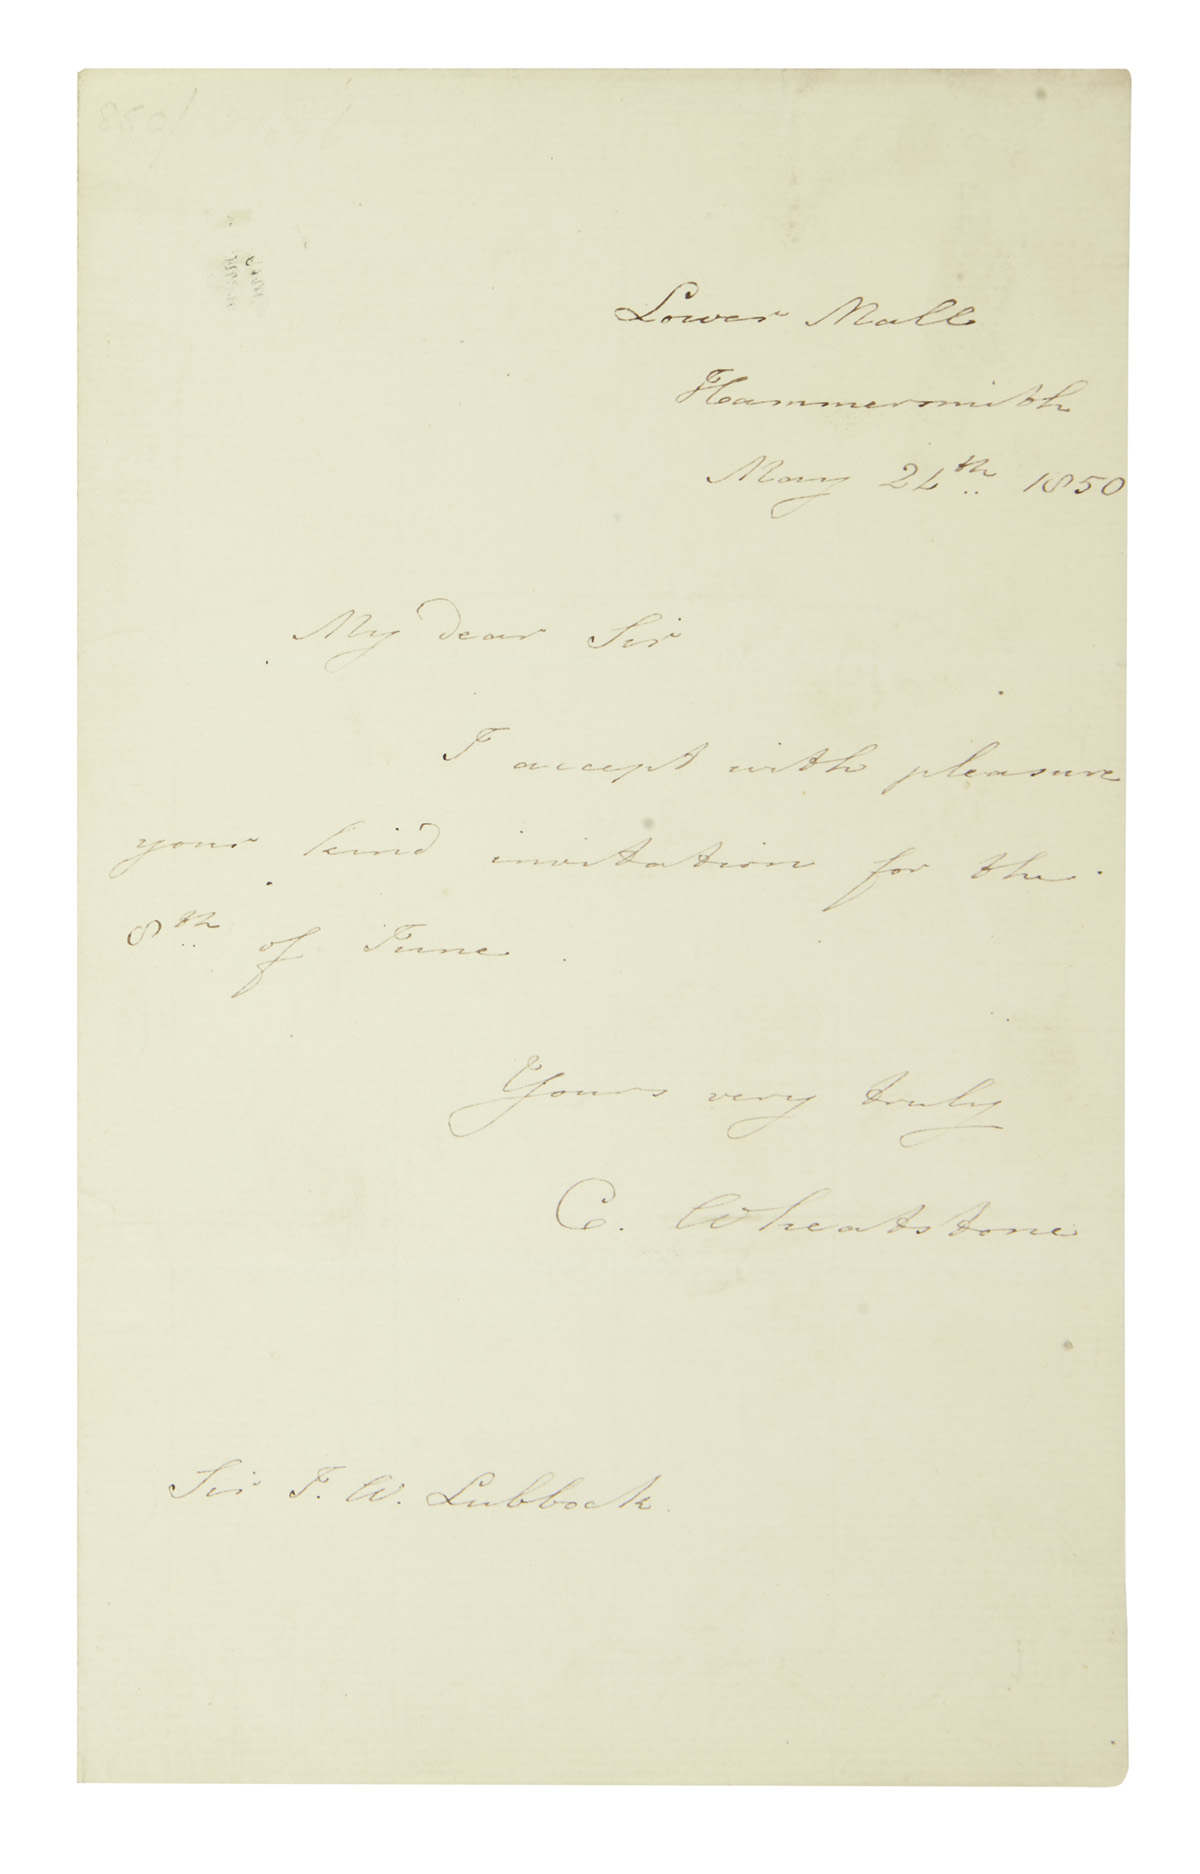 Lower Mall
Hammersmith
May 24th 1850
My dear Sir
I accept with pleasure
your kind invitation for the
8th of June.
Yours very truly
C. Wheatstone
Sir J. W. Lubbock.